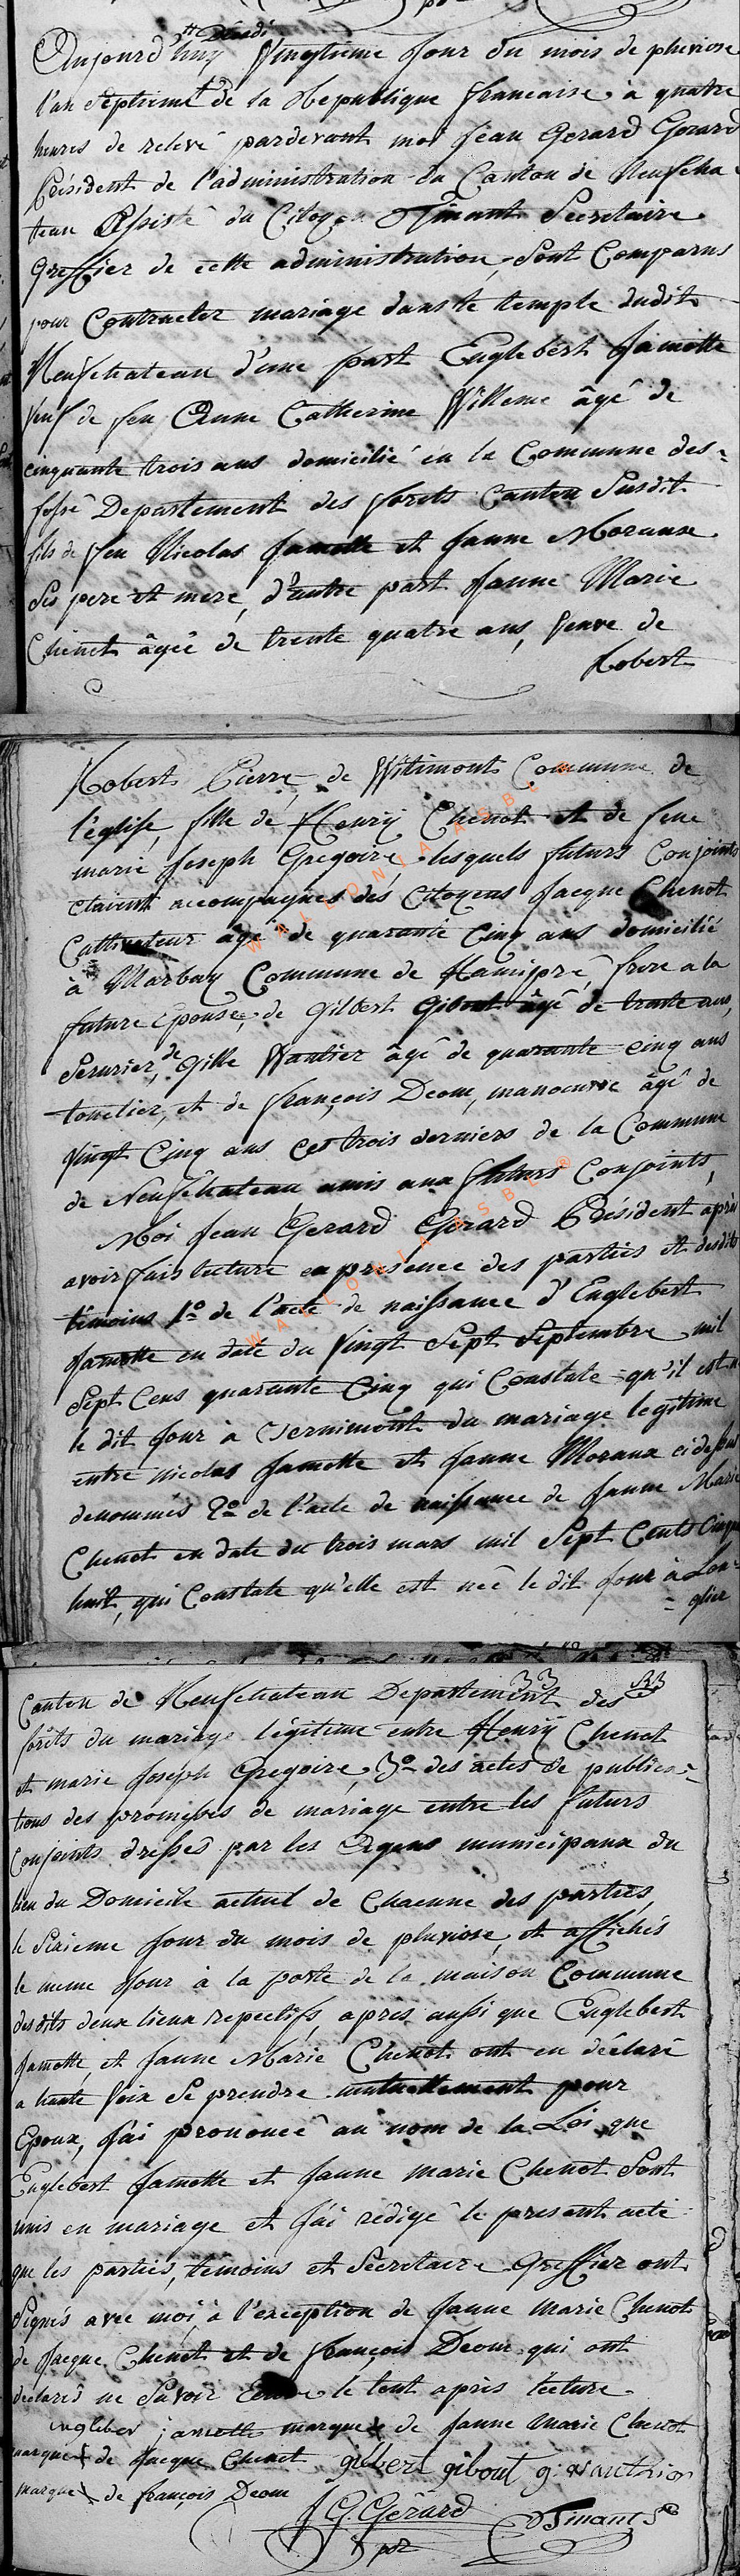 Décadi
Aujourd'huy Vingtieme Jour du mois de pluviose
l'an Septieme de la Republique francaise à quatre
heures de relevé pardevant moi Jean Gerard Gerard
Président de l'administration du Canton de Neufcha-
teau Assisté du Citoyen Tinant Secretaire
Greffier de cette administration, Sont Comparus
pour Contracter mariage dans le temple dudit
Neufchateau d'une part Englebert Jamotte
Veuf de feu Anne Catherine Willeme âgé de
cinquante trois ans domicilié en la Commune des-
fossé Departement des forets Canton Susdit
fils de feu Nicolas Jamotte et Janne Moraux
Ses pere et mere, d'autre part Janne Marie
Chenot âgée de trente quatre ans, Veuve de
Robert
Robert Pierre, de Witimont Commune de
l'église, fille de Henry Chenot et de feue
marie Joseph Gregoire, lesquels futurs Conjoints
etaient accompagnés des Citoyens Jacque Chenot
Cattivateur âgé de quarante Cinq ans domicilié
à Marbay Commune de Hamipré, frere a la
future Epouse, de Gilbert Gibout âgé de trente ans,
Serurier, de Gille Wautier âgé de quarante cinq ans
tonelier, et de françois Deom, manoeuvre âgé de
Vingt Cinq ans Ces trois derniers de la Commune
de Neufchateau amis aux futurs Conjoints,
Moi Jean Gerard Gerard Président après
avoir fais lecture en presence des parties et desdits
témoins 1º de l'acte de naissance d'Englebert
Jamotte en date du Vingt Sept Septembre mil
Sept Cens quarante Cinq qui Constate qu'il est né
le dit Jour à Bernimont du mariage legitime
entre Nicolas Jamotte et Janne Moraux ci dessus
denommés 2º de l'acte de naissance de Janne Marie
Chenot en date du trois mars mil Sept Cents Cinq
huit, qui Constate qu'elle est née le dit Jour à Lon-
= glier
WALLONIA ASBL ®
WALLONIA ASBL ®
33
Canton de Neufchateau Departement des
forêts du mariage légitime entre Henry Chenot
et marie Joseph Gregoire, 3º des actes de publica-
tions des promesses de mariage entre les futurs
Conjoints dressés par les Agens municipaux du
lieu du Domicile actuel de Chacune des parties,
le Sixieme Jour du mois de pluviose, et affichés
le meme Jour à la porte de la maison Commune
des dits deux lieux repectifs, après aussi que Englebert
Jamotte, et Janne Marie Chenot ont en déclaré
a haute Voix Se prendre mutuellement pour
Epoux, J'ai prononcé au nom de la Loi que
Englebert Jamotte et Janne marie Chenot Sont
unis en mariage et J'ai rédigé le present acte
que les parties, témoins et Secretaire Greffier ont
Signés avec moi, à l'exception de Janne Marie Chenot
de Jacque Chenot et de françois Deom qui ont
declarés ne Savoir Ecrire le tout après lecture
englber jamotte marque de Janne Marie Chenot
marque de Jacque Chenot gilbert gibout g: wauthier
marque de françois Deom
J G. Gérard
Tinant